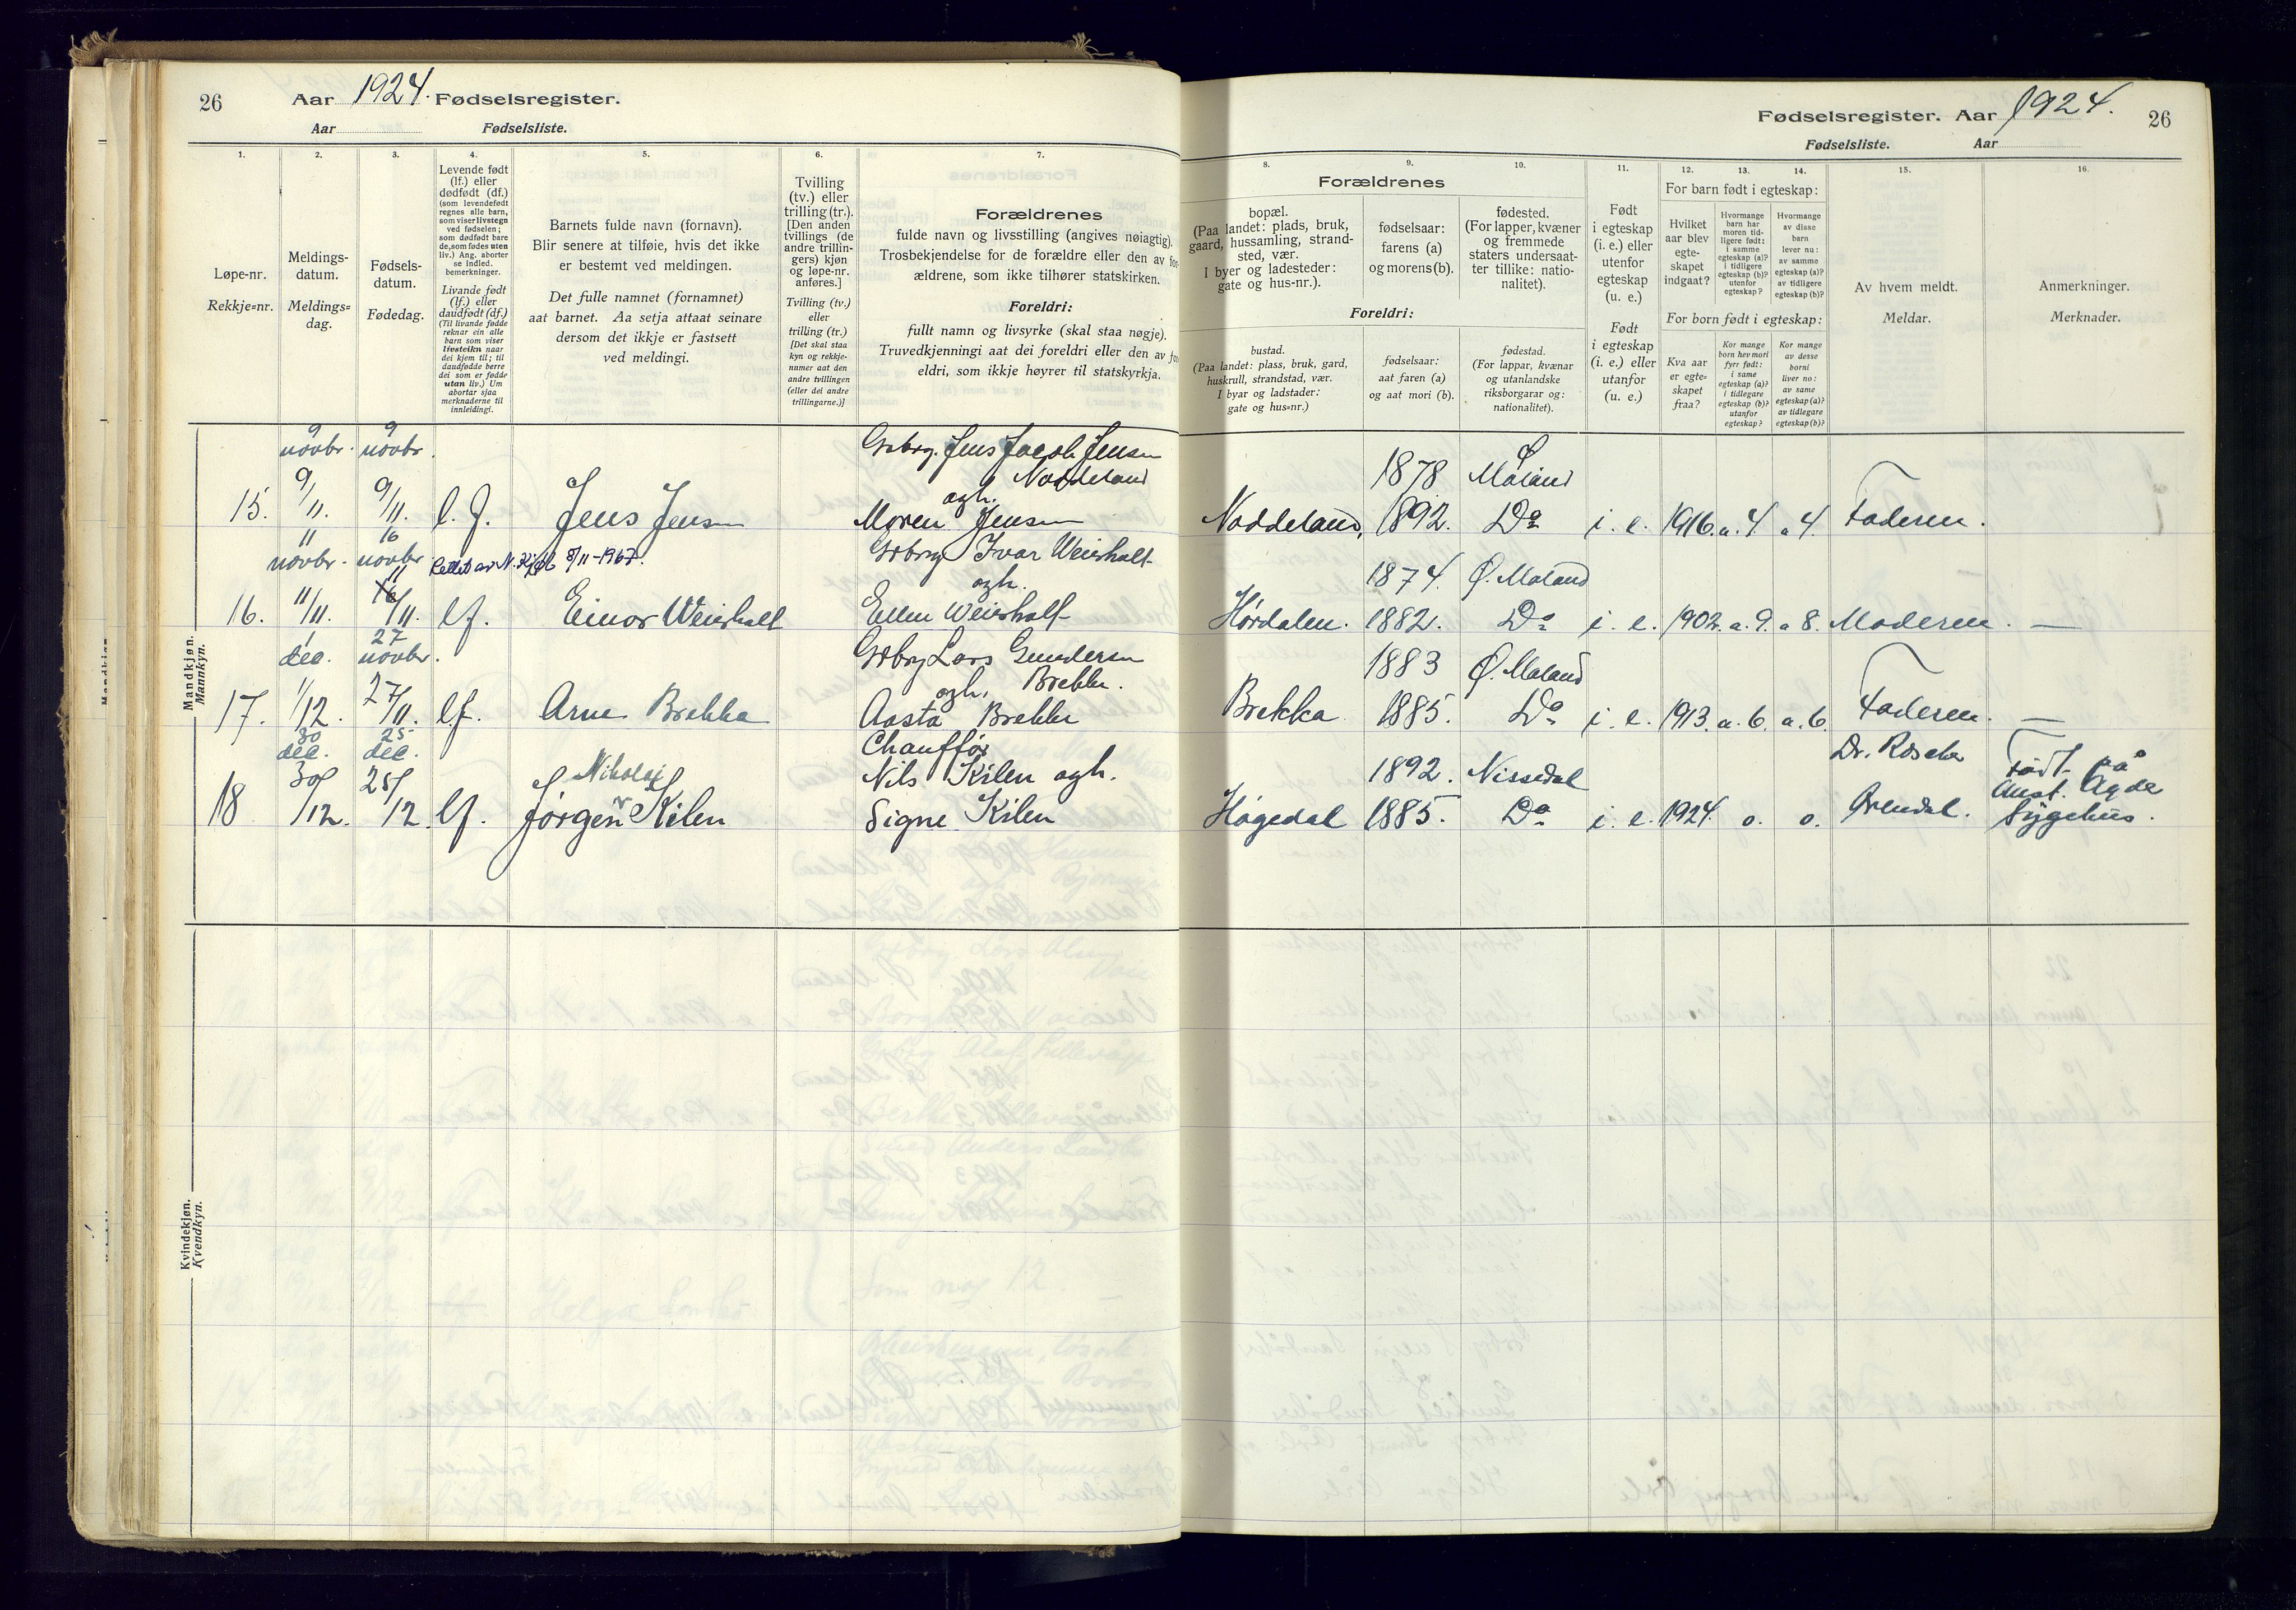 26
Aar 1924. Fødselsregister.
Aar Fødselsliste.
1.
Løpe-nr.
Rekkje=nr.
2.
Meldings-
datum.
Meldings=
dag.
3.
Fødsels-
datum.
Fødedag.
4.
Levende født
(lf.) eller
dødfødt (df.)
(som levendefødt
regnes alle barn,
som viser livstegn
ved fødselen;
som dødfødt bare
de, som fødes uten
liv.) Ang. aborter
se indled.
bemerkninger.
Livande født
(lf.) eller
daudfødt (df.)
(Til livande fødde
reknar ein alle
barn som viser
livsteikn naar
dei kjem til; til
daudfødde berre
dei som er fødde
utan liv.) Um
abortar sjaa
merknaderne til
innleidingi.
5.
Barnets fulde navn (fornavn).
Blir senere at tilføie, hvis det ikke
er bestemt ved meldingen.
Det fulle namnet (fornamnet)
aat barnet. Aa setja attaat seinare
dersom det ikkje er fastsett
ved meldingi.
6.
Tvilling
(tv.) eller
trilling (tr.).
[Den anden
tvillings (de
andre trillin-
gers) kjøn
og løpe-nr.
anføres.]
Tvilling (tv.)
eller
trilling (tr.)
[Det skal staa
kyn og rekkje-
numer aat den
andre tvillingen
(eller dei andre
trillingarne.)]
7.
Forældrenes
fulde navn og livsstilling (angives nøiagtig).
Trosbekjendelse for de forældre eller den av for
ældrene, som ikke tilhører statskirken.
Foreldri:
fullt namn og livsyrke (skal staa nøgje).
Truvedkjenningi aat dei foreldri eller den av for
eldri, som ikkje høyrer til statskyrkja.
Fødselsregister. Aar 1924. 26
Fødselsliste. Aar
Forældrenes
8.
bopæl.
(Paa landet: plads, bruk,
gaard, hussamling, strand-
sted, vær.
I byer og ladesteder:
gate og hus-nr.).
9.
fødselsaar:
farens (a)
og morens (b).
10.
fødested.
(For lapper, kvæner
og fremmede
staters undersaat-
ter tillike: natio-
nalitet).
Foreldri:
bustad.
(Paa landet: plass, bruk, gard,
huskrull, strandstad, vær.
I byar og ladstader:
gate og hus=nr.)
fødselsaar:
aat faren (a)
og aat mori (b).
fødestad.
(For lappar, kvænar
og utanlandske
riksborgarar og:
nationalitet).
11.
Født
i egteskap
(i. e.) eller
utenfor
egteskap
(u. e.)
Født
i egteskap
(i. e.) eller
utanfor
(u. e.)
12. 13. 14.
For barn født i egteskap:
Hvilket
aar blev
egte-
skapet
indgaat?
Hvormange
barn har
moren tid-
ligere født:
i samme
egteskap (a)?
i tidligere
egteskap (b)?
utenfor
egteskap?
Hvormange
av disse
barn
lever nu:
av samme
egteskap (a)?
av tidligere
egteskap (b)?
For born født i egteskap:
Kva aar
er egte=
skapet
fraa?
Kor mange
born hev mori
fyrr født:
i same
egteskap (a)?
i tidlegare
egteskap (b)?
utanfor
egteskap?
Kor mange
av desse
borni
liver no:
av same
egteskap (a)?
av tidlegare
egteskap (b)?
15.
Av hvem meldt.
Meldar.
16.
Anmerkninger.
Merknader.
Mandkjøn.
Mannkyn.
9 novbr. 9 novbr.
Gbrg. Jens Jacob Jensen
Noddeland
1878 Ø. Moland
15. 9/11. 9/11. l. f. Jens Jensen
ogh.
Moren Jensen Noddeland, 1892. Do i. e. 1916. a. 4 a 4. Faderen.
11 novbr. 16 novbr
Rettet av 8/11-1967.
Gbrg Ivar Weirholt
ogh.
1874. Ø. Moland
16. 11/11. 16 11/11. lf. Einar Weirholt
Ellen Weirholt Hørdalen. 1882. Do i. e. 1902. a. 9. a 8. Moderen. —
1 dec. 27 novbr.
Gbrg Lars Gundersen
Brekka.
ogh.
1883 Ø. Moland
17. 1/12. 27/11. lf. Arne Brekka
Aasta Brekka Brekka 1885. Do i. e. 1913. a. 6. a. 6. Faderen. —
30 dec. 25 dec.
Nikolai
Chauffør
Nils Kilen ogh.
1892. Nissedal
Dr. Rosch
Født på
Aust. Agde
18 30/12. 25/12. lf. Jørgen Kilen
Signe Kilen Høgedal 1885. Do i. e. 1924. o. o. Arendal. Sygehus.
Kvindekjøn.
Kvendkyn.